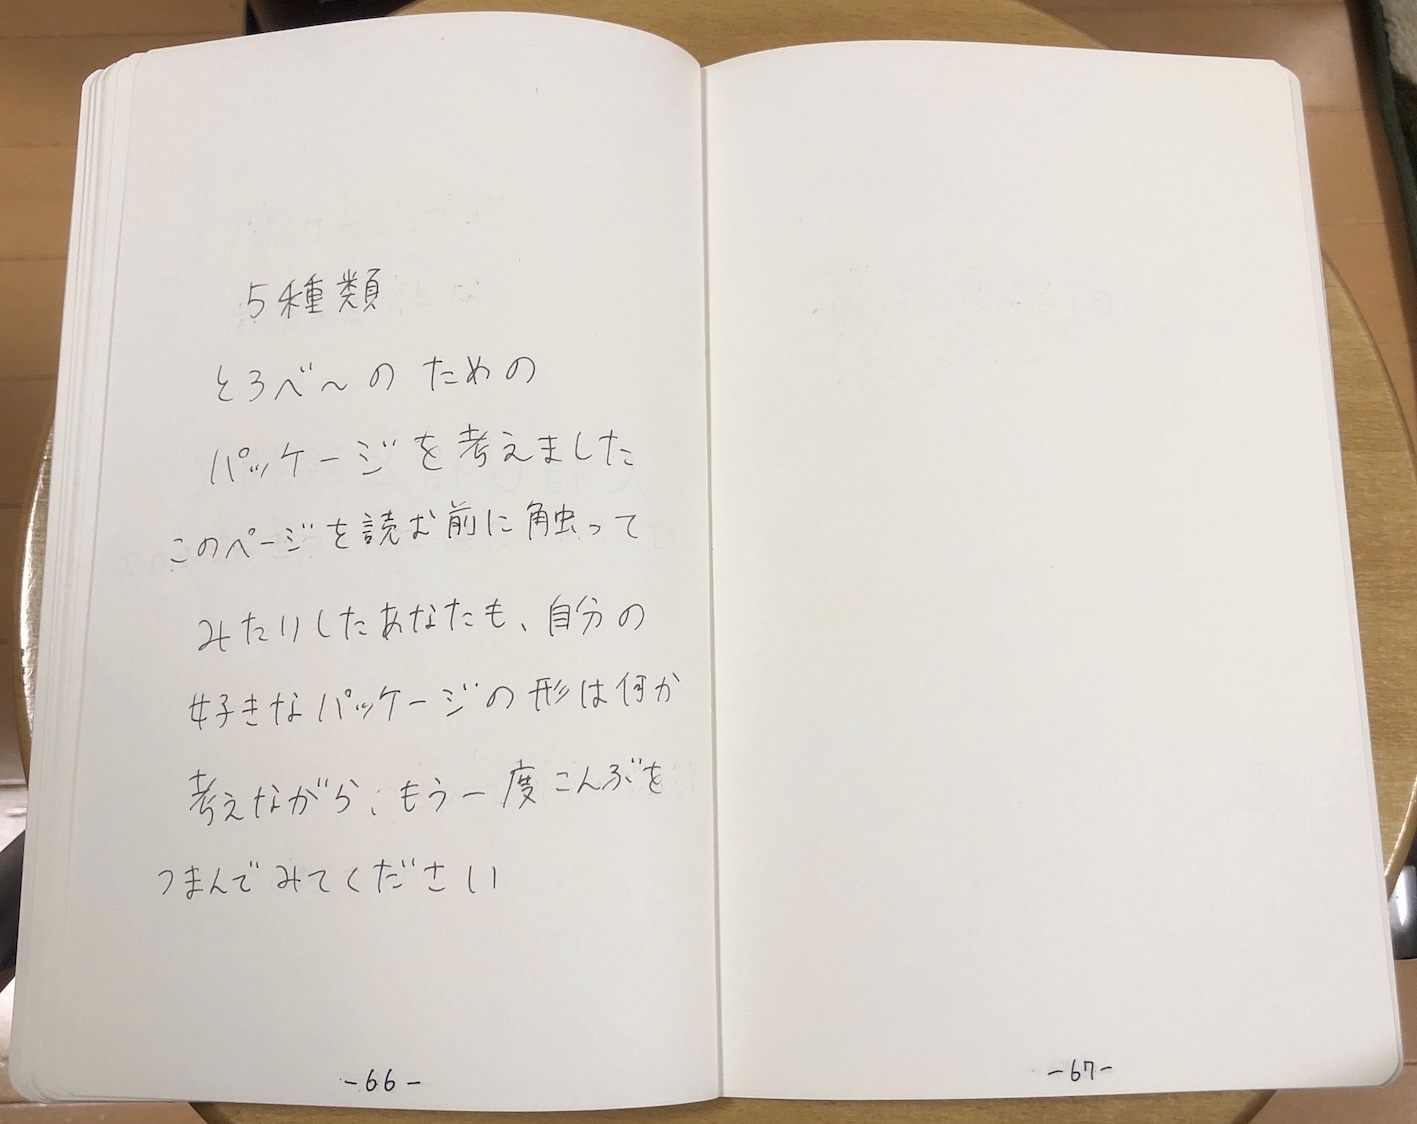 5種類
とろべ〜のための
パッケージを考えました
このページを読む前に触って
みたりしたあなたも、自分の
好きなパッケージの形は何か
考えながら、もう一度こんぶを
つまんでみてください
-66-
-67-